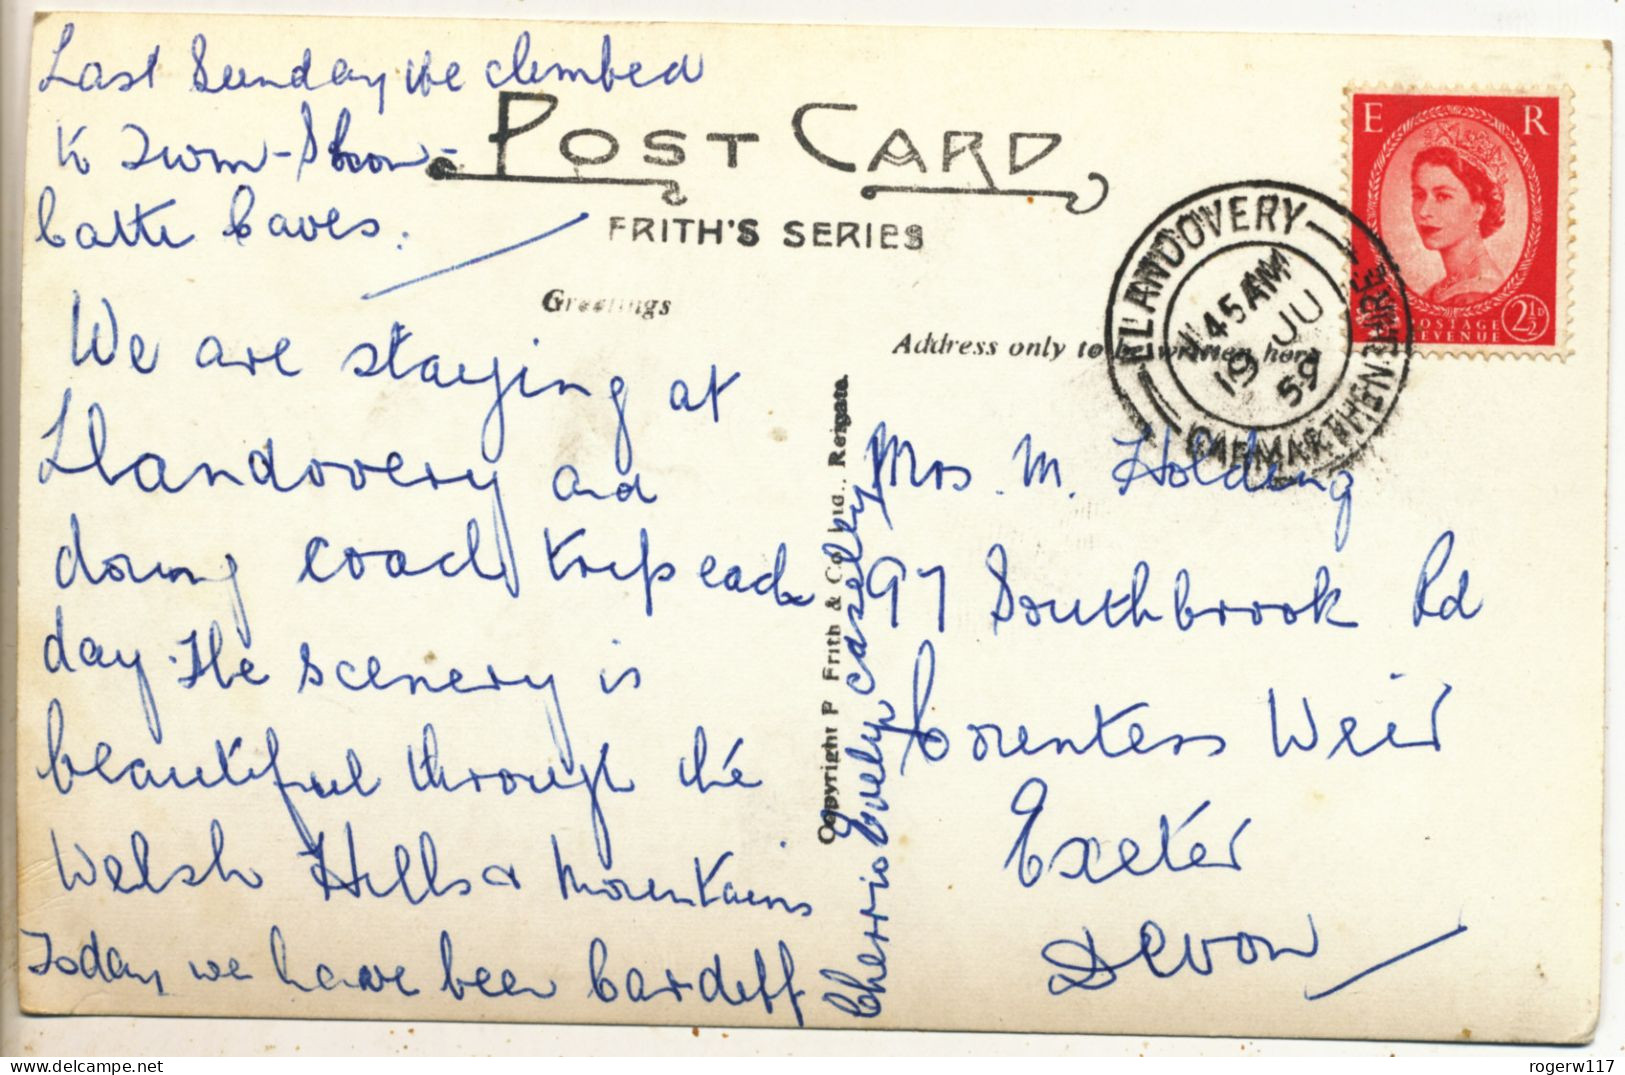 Last Sunday we climbed
to Twm-Shon-
Catte Caves.
POST CARD
FRITH'S SERIES
Greetings
Address only to be written here
E R
POSTAGE
REVENUE
2½D
LLANDOVERY
11 45 AM
19 JU
59
CARMARTHENSHIRE
We are staying at
Llandovery and
doing coach trips each
day. The scenery is
beautiful through the
Welsh Hills & Mountains
Today we have been Cardiff
Cherrio Evelyn Caselley
Copyright F Frith & Co Ltd., Reigate.
Mrs. M. Holding
97 Southbrook Rd
Countess Weir
Exeter
Devon
rogerw117